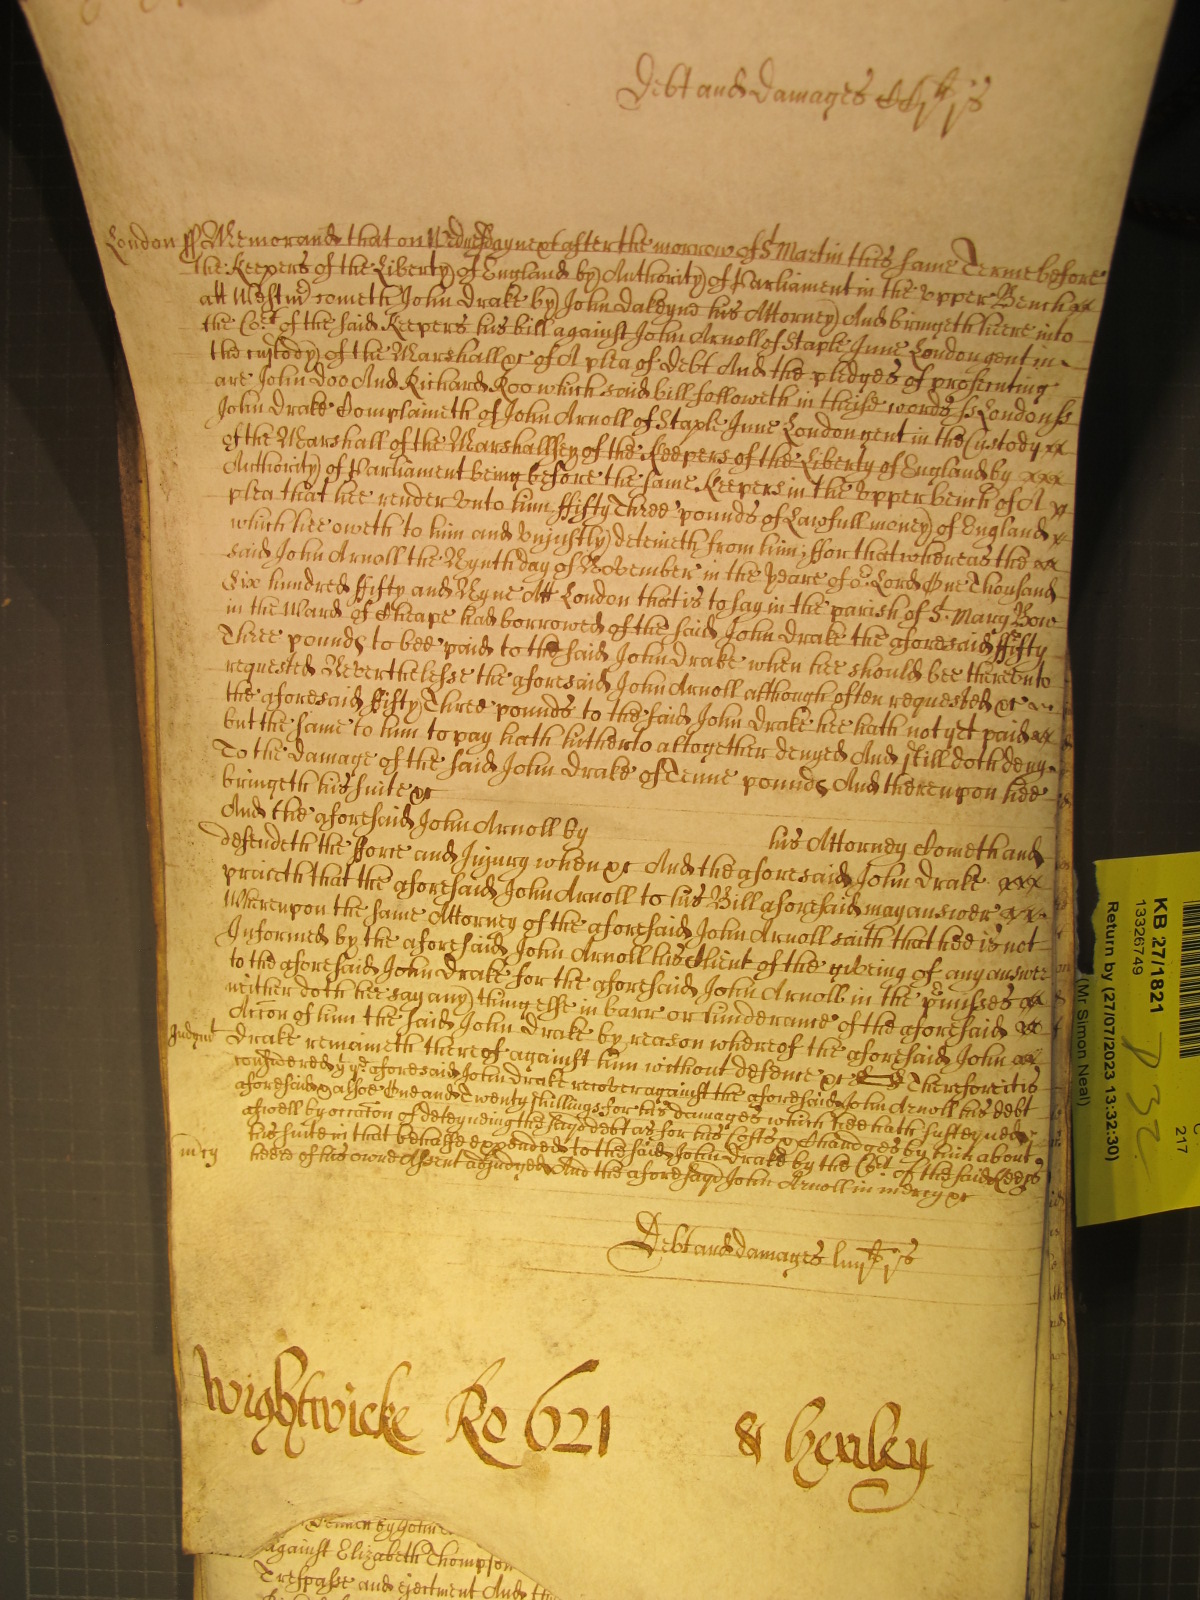 Debt and damages
London ss Memorand that on Wednesday next after the morrow of St Martin this same Terme before
the Keepers of the Liberty of England by Authority of Parliament in the upper Bench xx
att Westmr cometh John Drake by John Dakeyne his Attorney And bringeth heere into
the Cort of the said Keepers his bill against John Arnoll of Staple Inne London gent in
the custody of the Marshall &c of A plea of Debt And the pledges of prosecuting
are John Doo And Richard Roo which said bill followeth in theise words ss London ss
John Drake Complaineth of John Arnoll of Staple Inne London gent in the Custody xx
of the Marshall of the Marshallsey of the Keepers of the Liberty of England by xxx
Authority of Parliament being before the same Keepers in the upper bench of A x
plea that hee render unto him ffifty Three pounds of Lawfull money of England x
which hee oweth to him and unjustly deteineth from him; ffor that whereas the xx
said John Arnoll the Nynth day of November in the yeare of or Lord One Thousand
Six hundred ffifty and Nyne Att London that is to say in the parish of St Mary Bow
in the Ward of Cheape had borrowed of the said John Drake the aforesaid ffifty
Three pounds to bee paid to the said John Drake when hee should bee thereunto
requested Neverthelesse the aforesaid John Arnoll although often requested &c
the aforesaid ffifty Three pounds to the said John Drake hee hath not yet paid xx
but the same to him to pay hath hitherto altogether denyed And still doth deny
To the damage of the said John Drake of Tenne pounds And thereupon hee
bringeth his suite &c
And the aforesaid John Arnoll by his Attorney Cometh and
defendeth the fforce and Injury when &c And the aforesaid John Drake xxx
prayeth that the aforesaid John Arnoll to his Bill aforesaid may answer xx
Whereupon the same Attorney of the aforesaid John Arnoll saith that hee is not
Informed by the aforesaid John Arnoll his Client of the giveing of any answer
to the aforesaid John Drake for the aforesaid John Arnoll in the pmisses xx
neither doth hee say any thing else in barr or hinderance of the aforesaid xx
Accon of him the said John Drake by reason whereof the aforesaid John xx
Judgmt Drake remaineth thereof against him without defence &c Therefore it is
considered yt ye aforesaid John Drake recover against the aforesaid John Arnoll his debt
aforesaid & alsoe One and Twenty shillings for his damages which hee hath susteyned
aswell by occacon of deteyneing the sayd debt as for his Costs & Chardges by him about
his suite in that behalfe expended to the said John Drake by the Cort of the said Keeps
mcy heere of his owne Assent adjudged And the aforesayd John Arnoll in mercy &c
Debt and damages liiijli js
Wightwicke Ro 621 & Henley
against Elizabeth Thompson
Trespasse and ejectment And
KB 27/1821
13326749
Return by (27/07/2023 13:32:30)
(Mr Simon Neal)
217